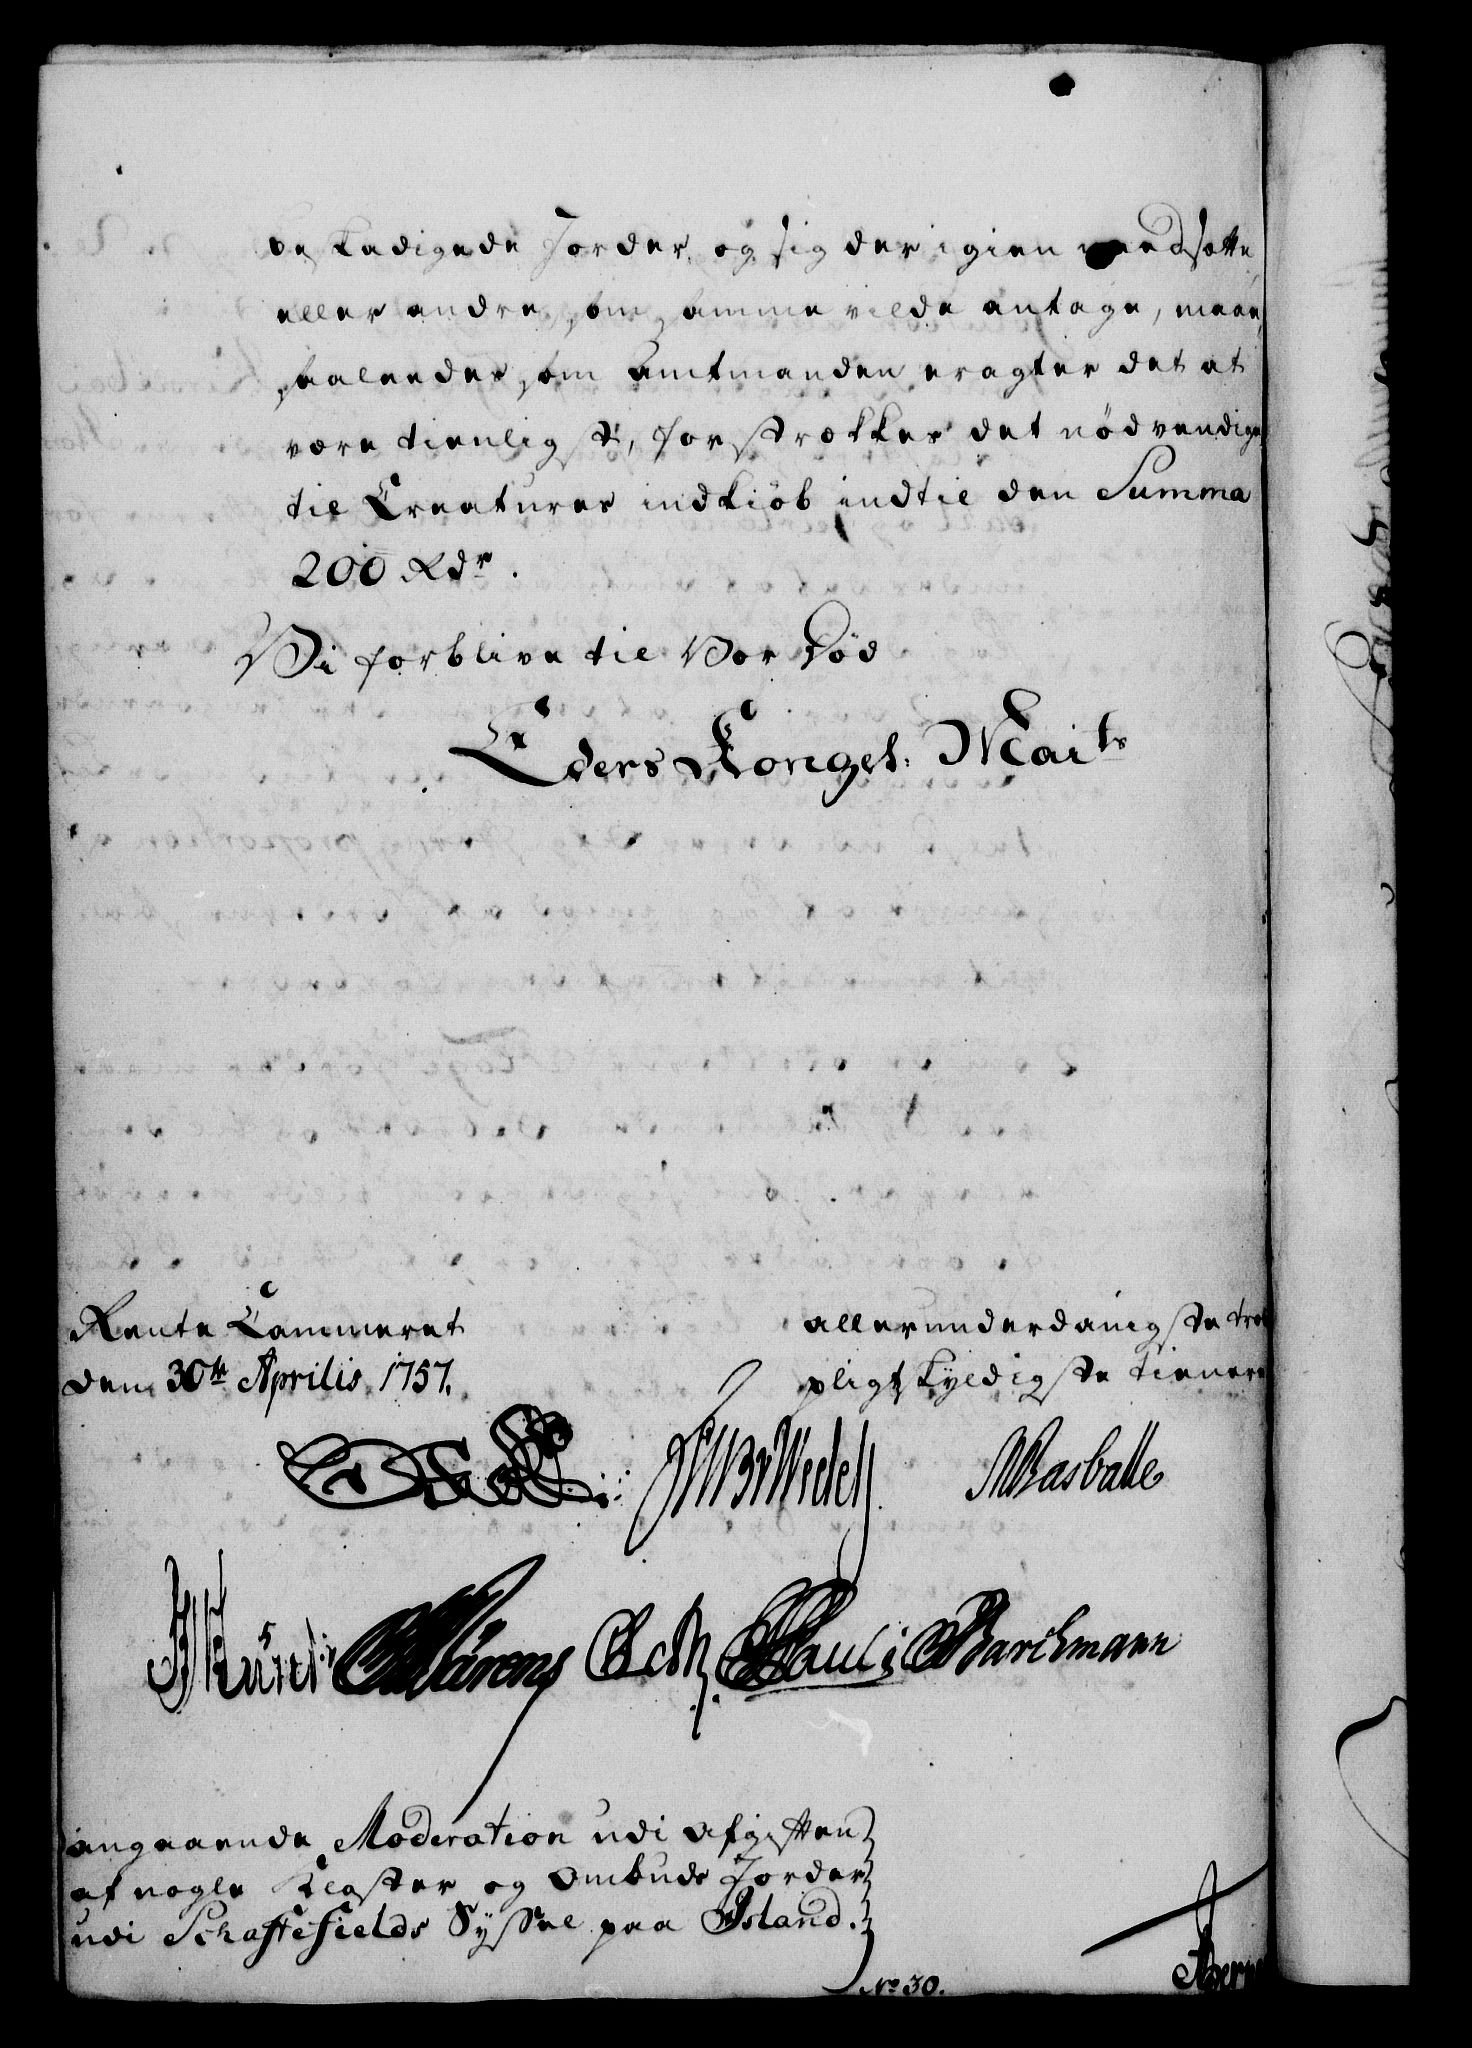 beskadigede Jorder, og sig der igien nædsætte,
eller andre, som samme vilde antage, maae,
saaleedes som Amtmanden eragter det at
være tienligst, forstrækkes det nödvendige
til Creaturer indkiöb indtil den Summa
200 Rdr.
Vi forblive til Vor Död
Eders Kongel: Maits
Rente Cammeret
den 30te Aprilis 1757.
allerunderdanigste troe
pligtskyldigste tienere
Wedell
Rasballe
Pauli Barchmann
angaaende Moderation udi Afgiften
af nogle Kloster og Ombuds Jorder
udi Schaftefields Syssel paa Island.
No 30.